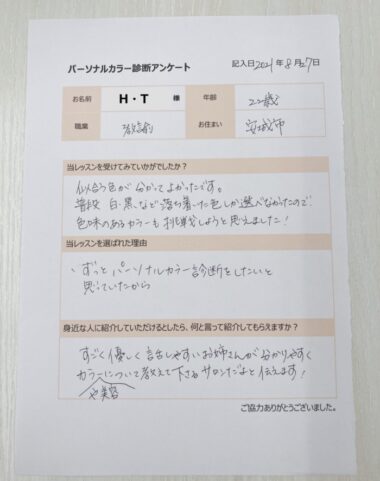 パーソナルカラー診断アンケート
記入日2021年8月27日
お名前 H・T 様 年齢 22歳
職業 お住まい 安城市
当レッスンを受けてみていかがでしたか?
似合う色が分かってよかったです。
普段 白・黒など落ち着いた色しか選べなかったので
色味のあるカラーも挑戦しようと思えました!
当レッスンを選ばれた理由
ずっとパーソナルカラー診断をしたいと
思っていたから
身近な人に紹介していただけるとしたら、何と言って紹介してもらえますか?
すごく優しく話しやすいお姉さんが分かりやすく
カラーについて教えて下さるサロンだよと伝えます!
や美容
ご協力ありがとうございました。